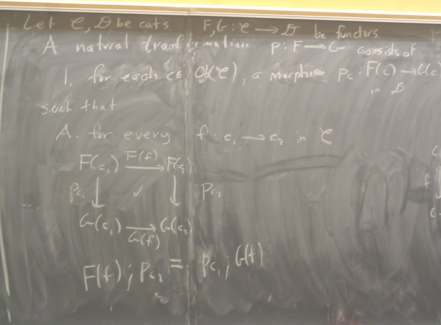 Let C, D be cats F, G: C → D be functors.
A natural transformation p: F → G consists of
1. for each c∈Ob(C), a morphism p_c: F(c) → G(c)
in D
such that
A. for every f: c₁ → c₂ in C
F(c₁) F(f) → F(c₂)
p_c₁ ↓ ✓ ↓ p_c₂
G(c₁) → G(c₂)
G(f)
F(f); p_c₂ = p_c₁; G(f)